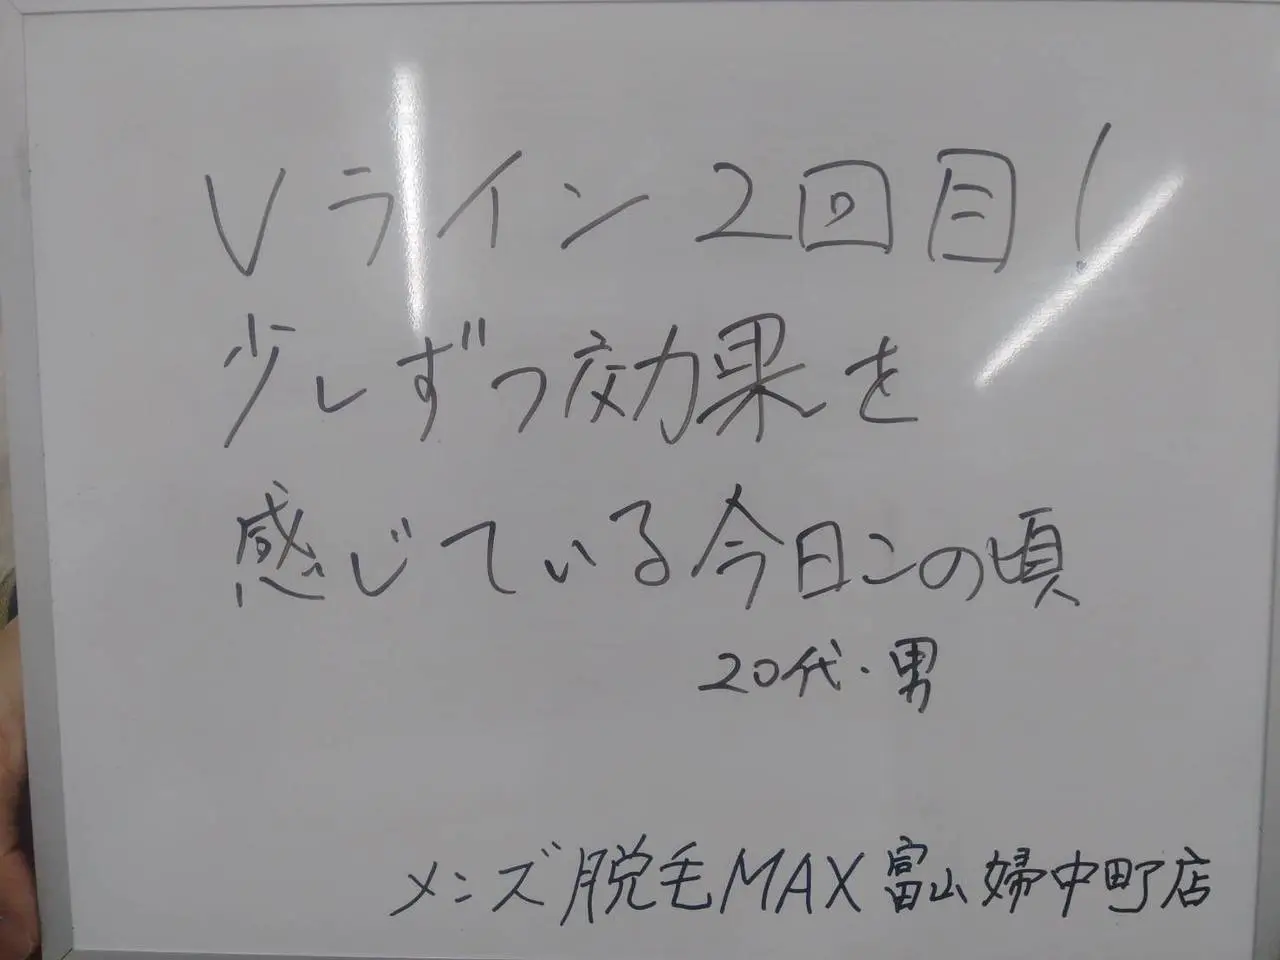 Vライン2回目!
少しずつ効果を
感じている今日この頃
20代・男
メンズ脱毛MAX富山婦中町店